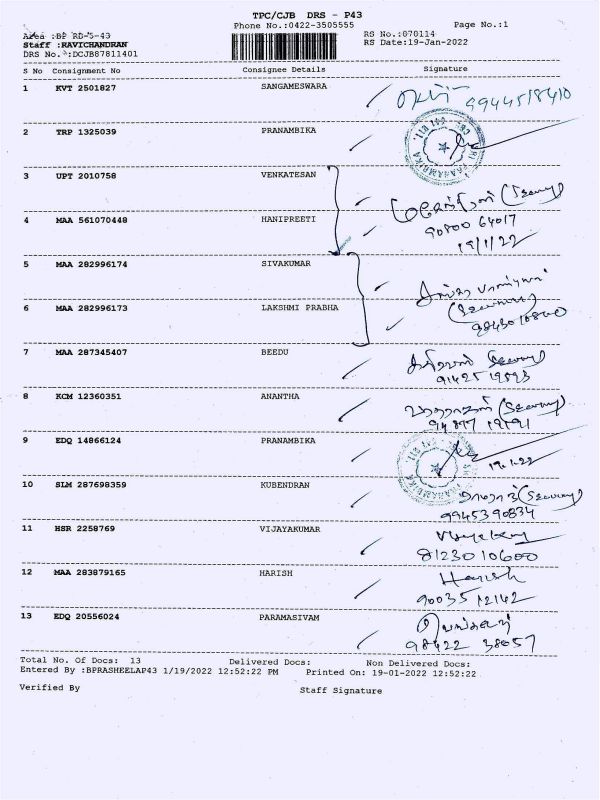 TPC/CJB DRS - P43
Phone No.:0422-3505555 Page No.:1
Area :BP RD-5-43 RS No.:070114
Staff :RAVICHANDRAN RS Date:19-Jan-2022
DRS No. :DCJB87811401
S No Consignment No Consignee Details Signature
1 KVT 2501827 SANGAMESWARA
9944518410
2 TRP 1325039 PRANAMBIKA
3 UPT 2010758 VENKATESAN
4 MAA 561070448 HANIPREETI
90800 64017
19/1/22
5 MAA 282996174 SIVAKUMAR
6 MAA 282996173 LAKSHMI PRABHA
7 MAA 287345407 BEEDU
8 KCM 12360351 ANANTHA
9 EDQ 14866124 PRANAMBIKA
19.1.22
10 SLM 287698359 KUBENDRAN
9945390834
11 HSR 2258769 VIJAYAKUMAR
81230 10600
12 MAA 283879165 HARISH
Harish
90035 12142
13 EDQ 20556024 PARAMASIVAM
98422 38057
Total No. Of Docs: 13 Delivered Docs: Non Delivered Docs:
Entered By :BPRASHEELAP43 1/19/2022 12:52:22 PM Printed On: 19-01-2022 12:52:22
Verified By Staff Signature